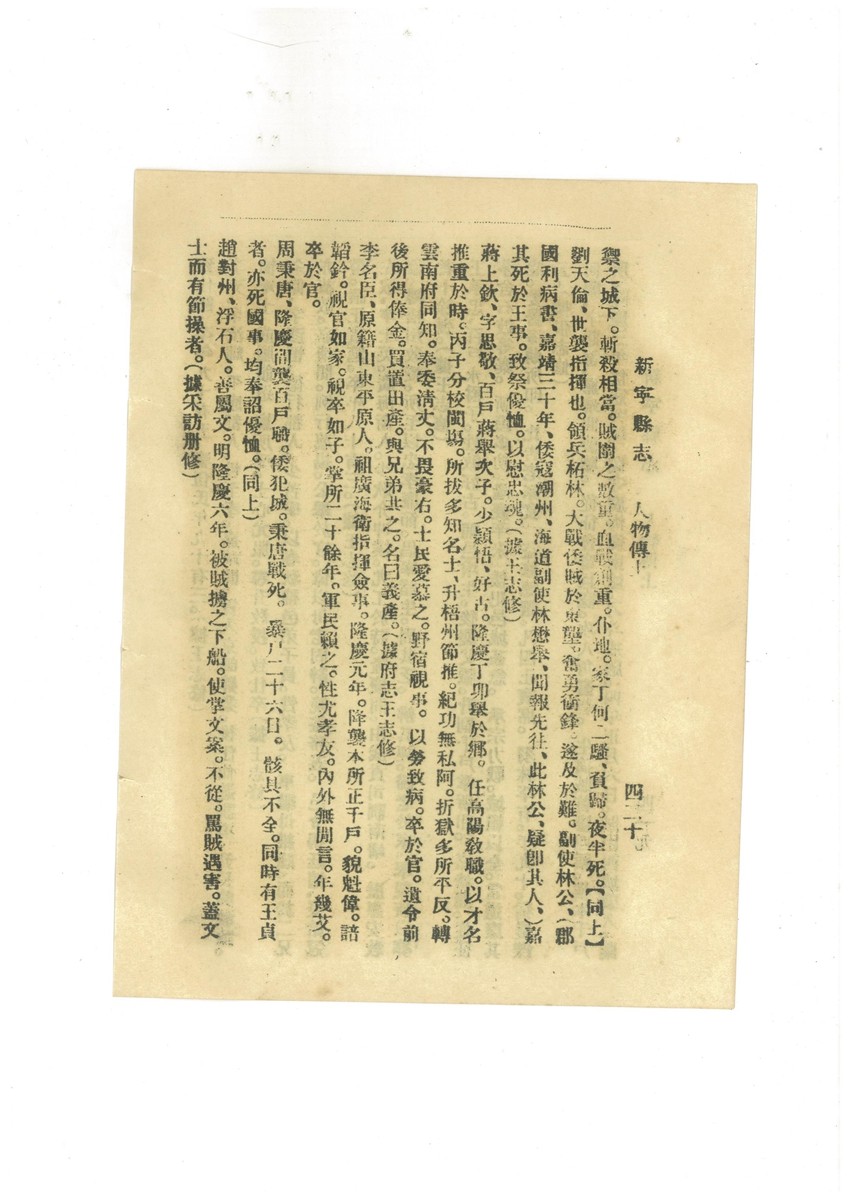 新寧縣志　人物傳上　四二十
禦之城下。斬殺相當。賊圍之數重。血戰創重。仆地。家丁何二騷、負歸。夜半死。【同上】
劉天倫、世襲指揮也。領兵柘林。大戰倭賊於東壟。奮勇衝鋒。遂及於難。副使林公、（郡
國利病書、嘉靖三十年、倭寇潮州、海道副使林懋舉、聞報先往、此林公、疑卽其人、）嘉
其死於王事。致祭優恤。以慰忠魂。（據王志修）
蔣上欽、字思敬、百戶蔣舉次子。少穎悟、好古。隆慶丁卯舉於鄉。任高陽敎職。以才名
推重於時。丙子分校閩場。所拔多知名士、升梧州節推。紀功無私阿。折獄多所平反。轉
雲南府同知。奉委淸丈。不畏豪右。士民愛慕之。野宿視事。以勞致病。卒於官。遺令前
後所得俸金。買置田產。與兄弟共之。名曰義產。（據府志王志修）
李名臣、原籍山東平原人。祖廣海衛指揮僉事。隆慶元年。降襲本所正千戶。貌魁偉。諳
韜鈐。視官如家。視卒如子。掌所二十餘年。軍民賴之。性尤孝友。內外無閒言。年幾艾。
卒於官。
周秉唐、隆慶間襲百戶職。倭犯城。秉唐戰死。暴尸二十六日。骸具不全。同時有王貞
者。亦死國事。均奉詔優恤。（同上）
趙對州、浮石人。善屬文。明隆慶六年。被賊擄之下船。使掌文案。不從。罵賊遇害。蓋文
士而有節操者。（據采訪册修）